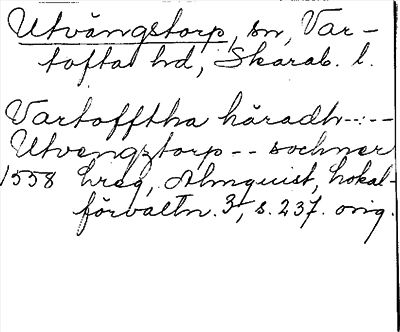 Utvängstorp, sn, Var-
tofta hd, Skarab. l.
Vartofftha häradh--:--
Utvengztorp -- sochner
1558 hreg, Almquist, Lokal-
förvaltn. 3, s. 237. orig.